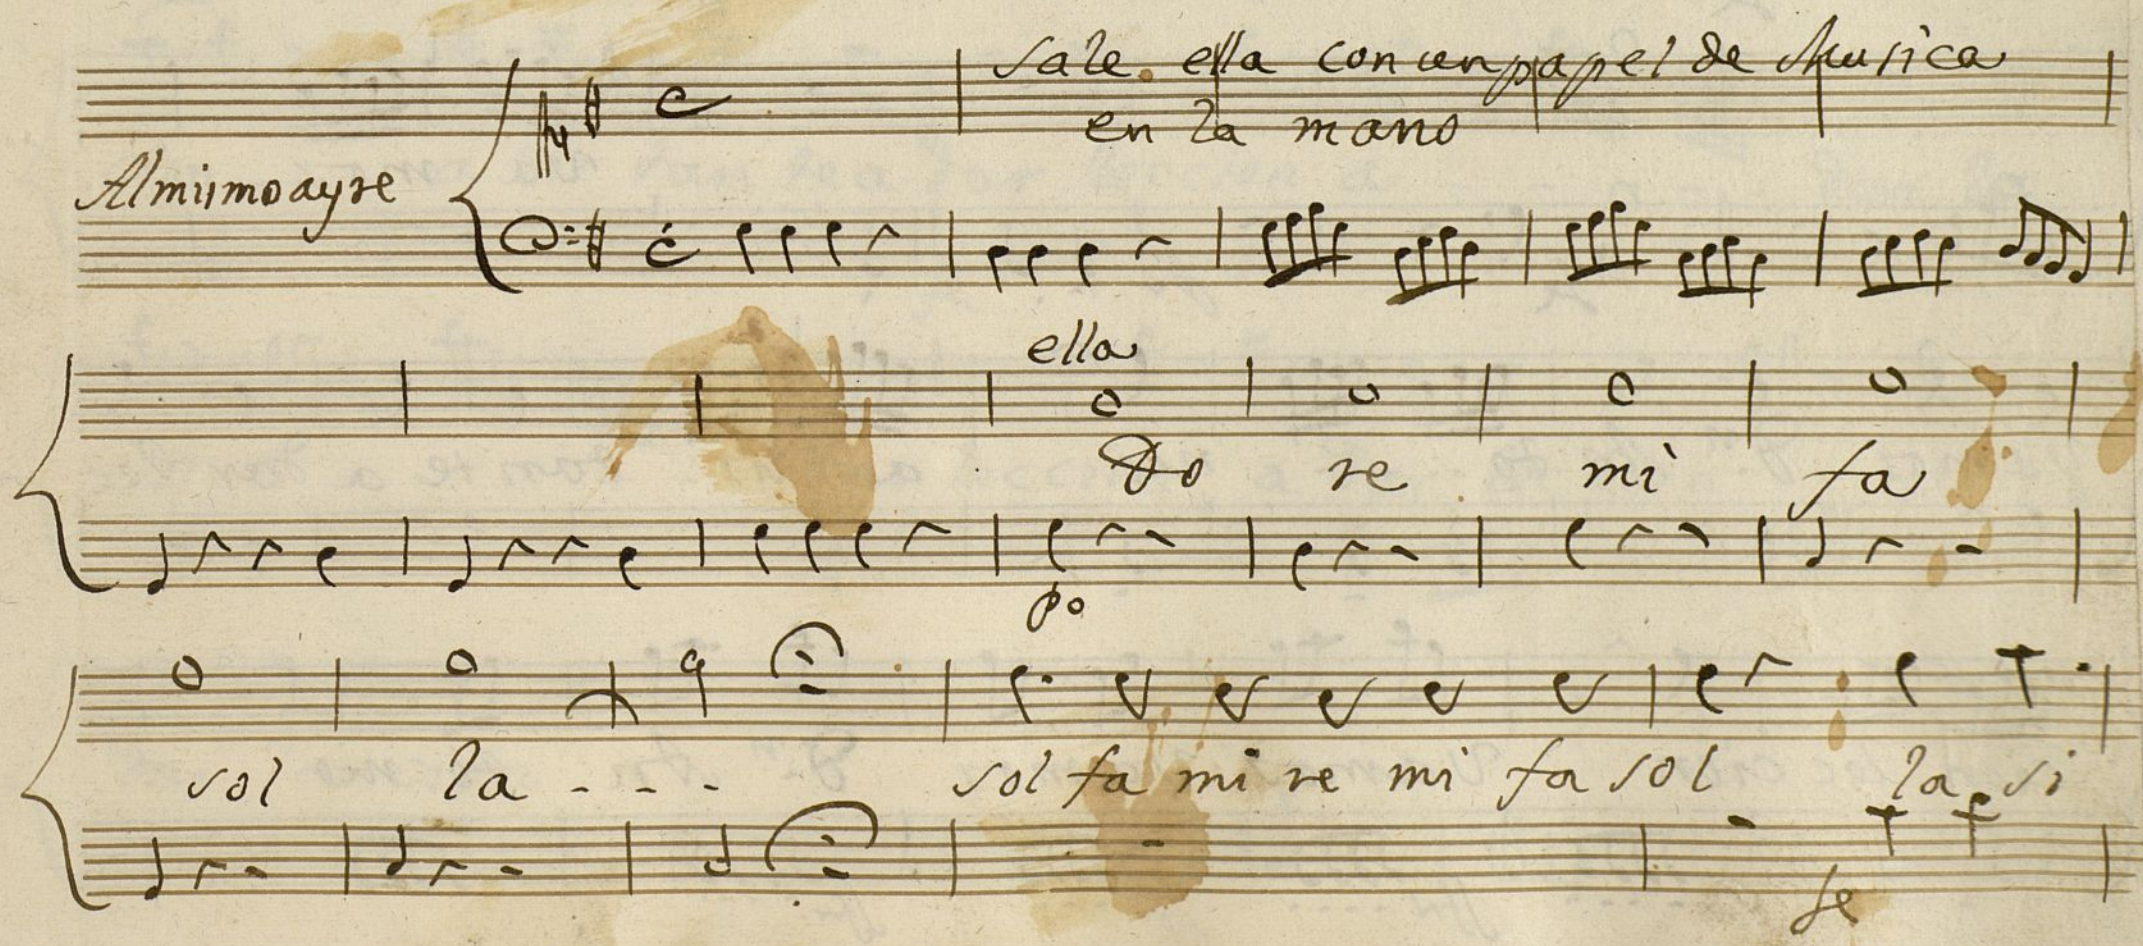 Sale. ella con un papel de Musica
en la mano
Al mismo ayre
ella
Do re mi fa
po
sol la - - - sol fa mi re mi fa sol la si
fe